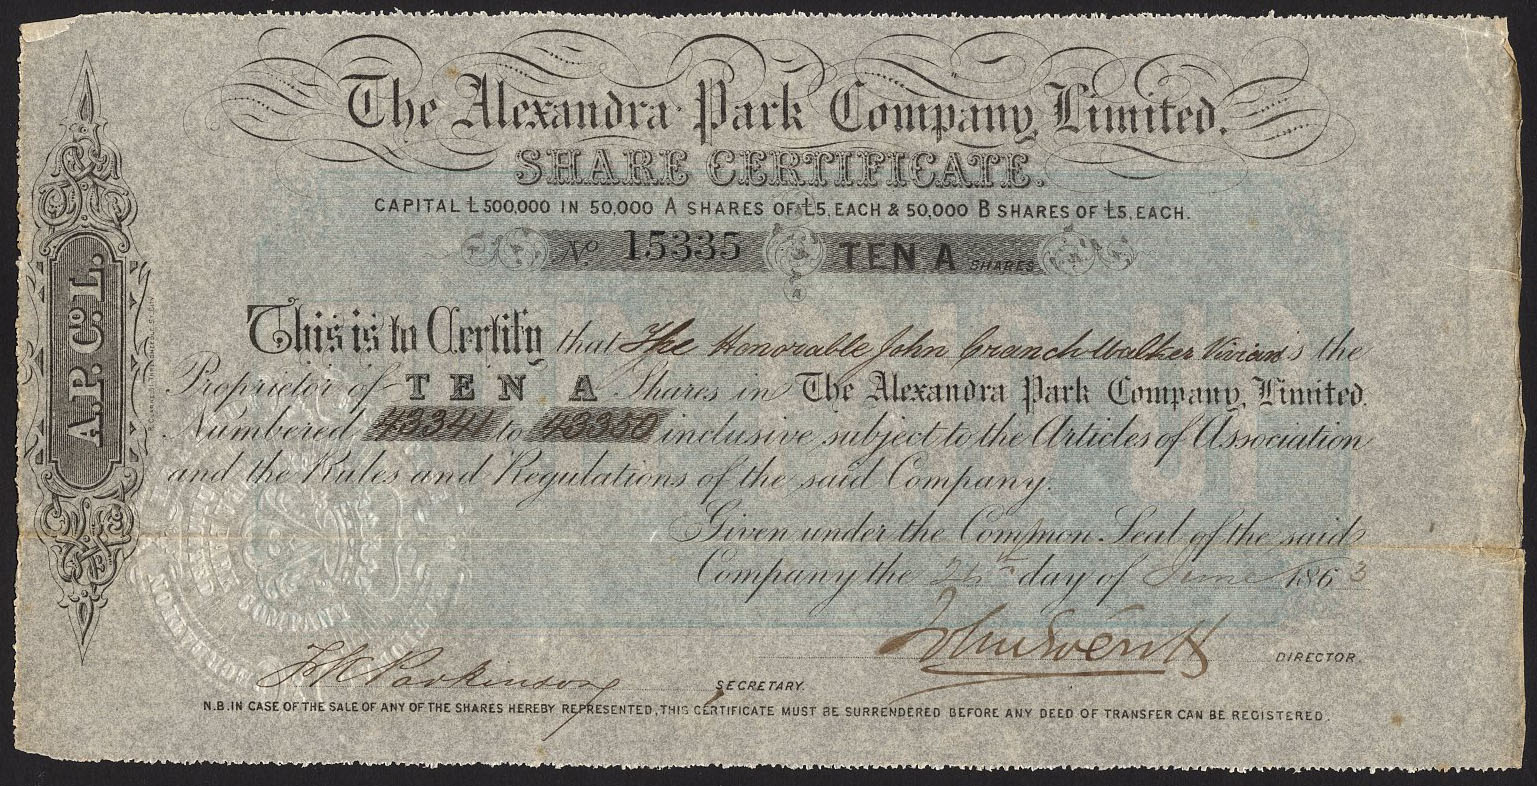 The Alexandra Park Company, Limited.
SHARE CERTIFICATE.
CAPITAL £500,000 IN 50,000 A SHARES OF £5, EACH & 50,000 B SHARES OF £5, EACH.
No. 15335 TEN A SHARES
This is to Certify that The Honorable John Cranch Walker Vivian is the
Proprietor of TEN A Shares in The Alexandra Park Company, Limited.
Numbered 43341 to 43350 inclusive subject to the Articles of Association
and the Rules and Regulations of the said Company.
Given under the Common Seal of the said
Company the day of June 1863
DIRECTOR.
Parkinson SECRETARY.
N.B. IN CASE OF THE SALE OF ANY OF THE SHARES HEREBY REPRESENTED, THIS CERTIFICATE MUST BE SURRENDERED BEFORE ANY DEED OF TRANSFER CAN BE REGISTERED.
A.P. Co. L.
PAID UP
COMPANY